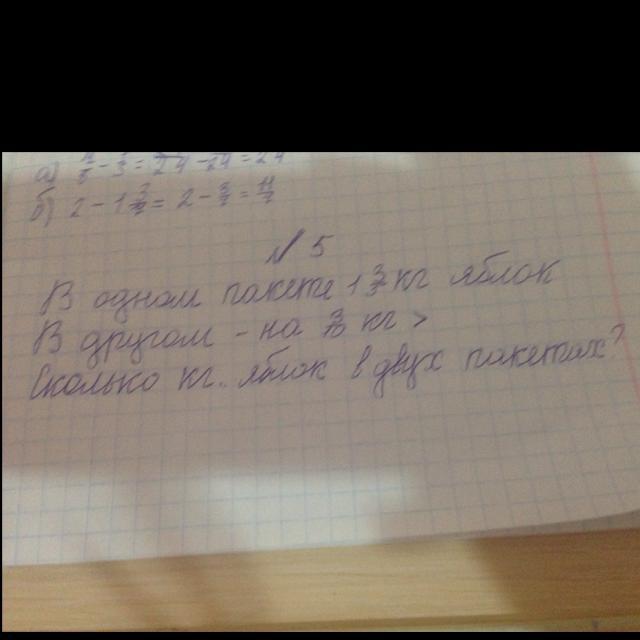 а)
б) 2 - 1
№ 5
В одном пакете 1 3/7 кг яблок
В другом - на кг >
Сколько кг. яблок в двух пакетах?